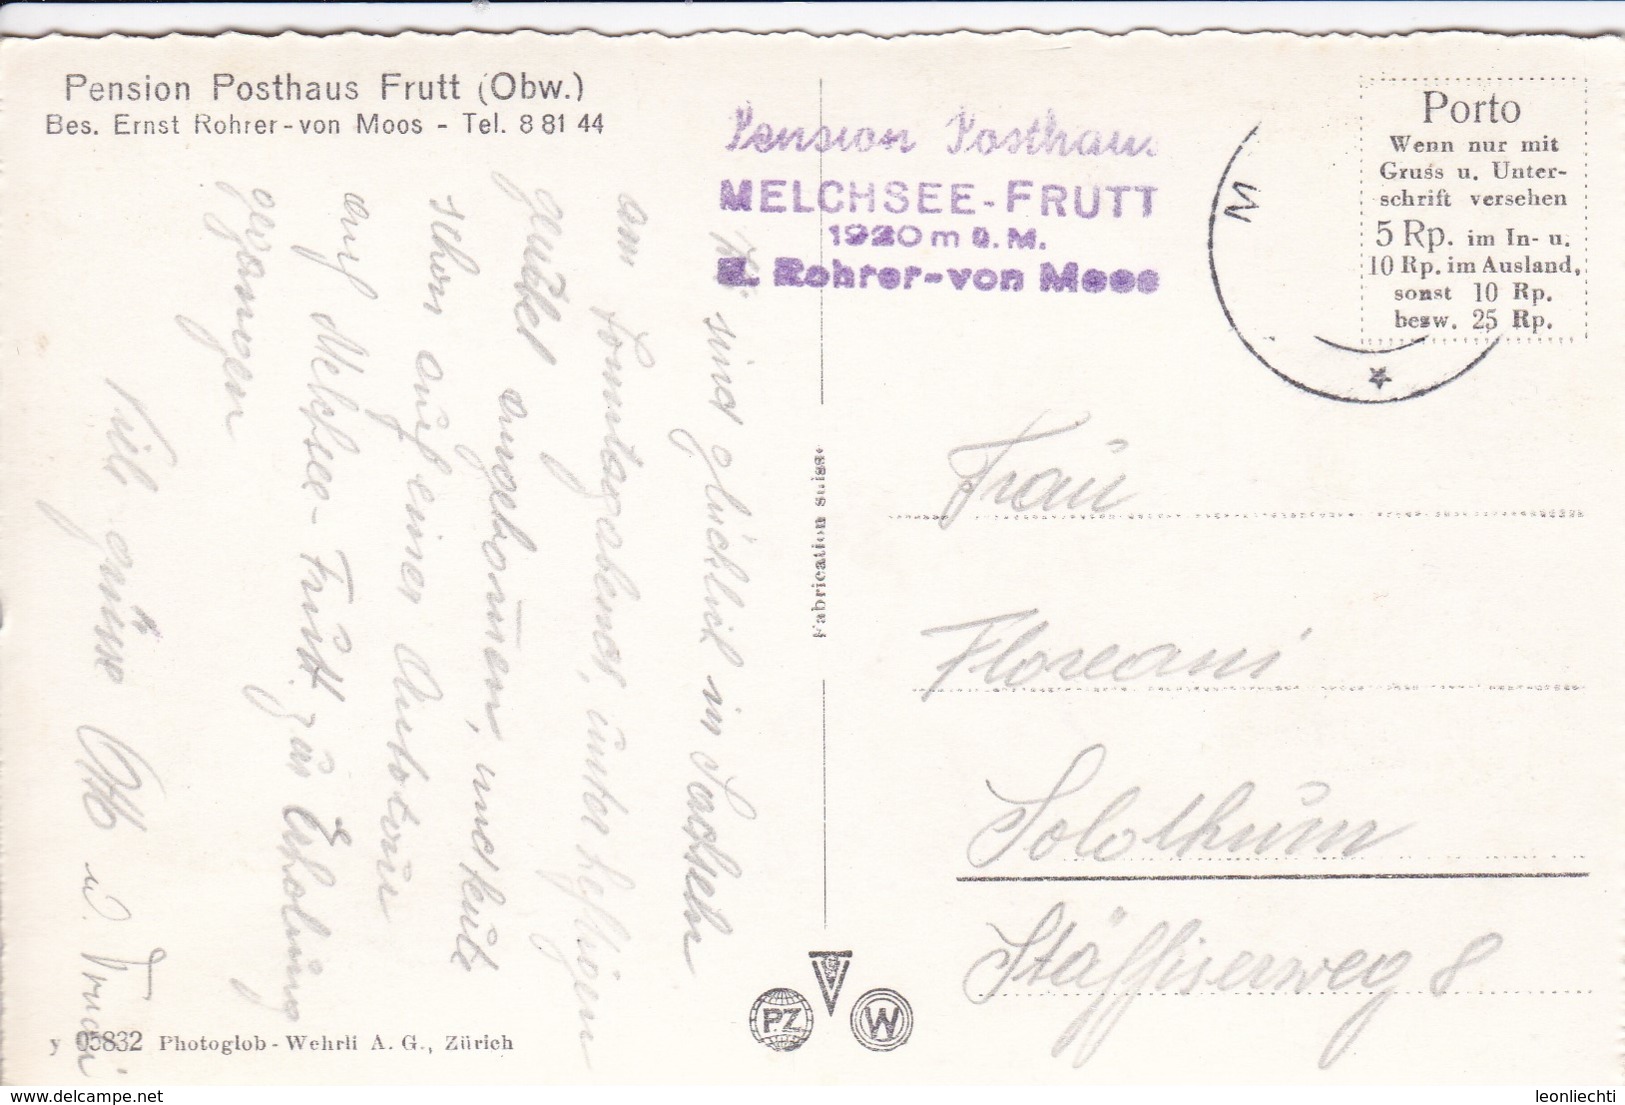 Pension Posthaus Frutt (Obw.)
Bes. Ernst Rohrer-von Moos - Tel. 8 81 44
Pension Posthaus
MELCHSEE-FRUTT
1920 m ü. M.
E. Rohrer-von Moos
M
Porto
Wenn nur mit
Gruss u. Unter-
schrift versehen
5 Rp. im In- u.
10 Rp. im Ausland,
sonst 10 Rp.
bezw. 25 Rp.
sind glücklich in Sachseln
am Sonntagabend, unter heftigen
angekommen, und heute
schon auf einer Autotour
auf Melchsee-Frutt zur Erholung
gegangen
Viele grüsse Otto u. Trudi
Fabrication suisse
Frau
Floreani
Solothurn
Stäffiserweg 8
y 05832 Photoglob-Wehrli A. G., Zürich
PZ
V
W
delcampe.net
leonliechti